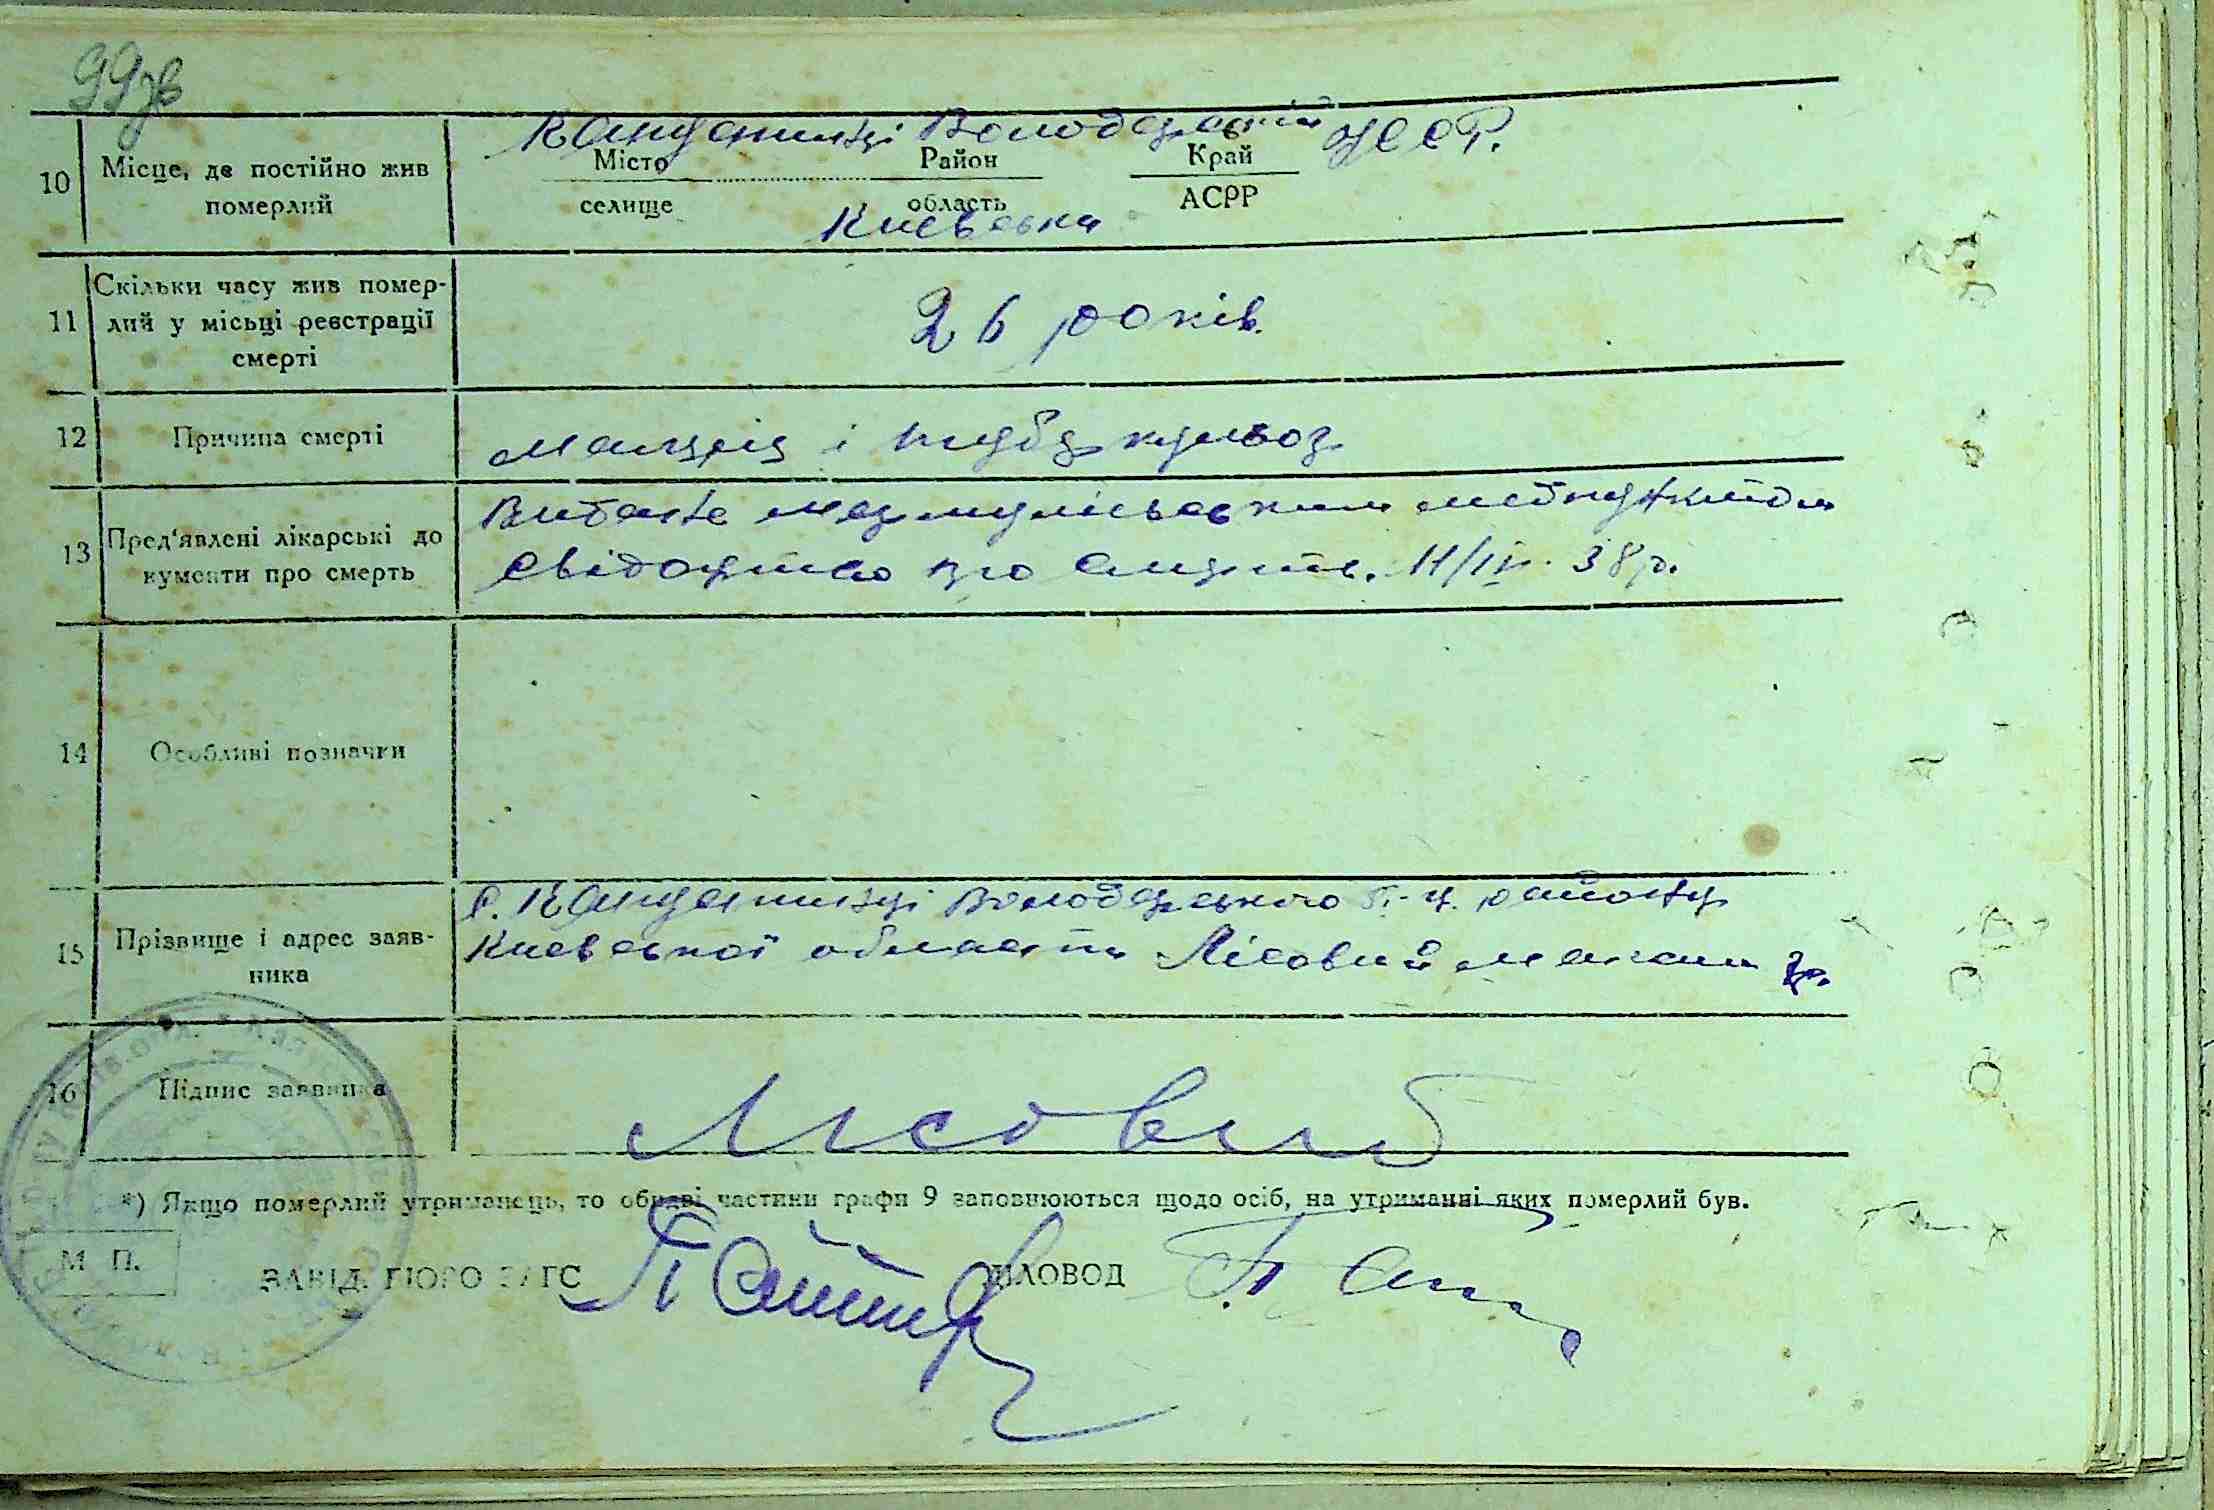 99зв
Капустинці Володарський УССР.
10 Місце, де постійно жив померлий
Місто Район Край
селище область АСРР
Київська
11 Скільки часу жив помер-
лий у місьці реєстрації
смерті
26 років.
12 Причина смерті
малярія і туберкульоз
13 Пред'явлені лікарські до
кументи про смерть
Видане медпунктом
свідоцтво про смерть. 11/IV. 38р.
14 Особливі позначки
15 Прізвище і адрес заяв-
ника
с. Капустинці Володарського району
Київської області Лісовий Максим
16 Підпис заявника
Лісовий
*) Якщо померлий утриманець, то обидві частини графи 9 заповнюються щодо осіб, на утриманні яких померлий був.
М П.
ЗАВІД. БЮРО ЗАГС ДІЛОВОД